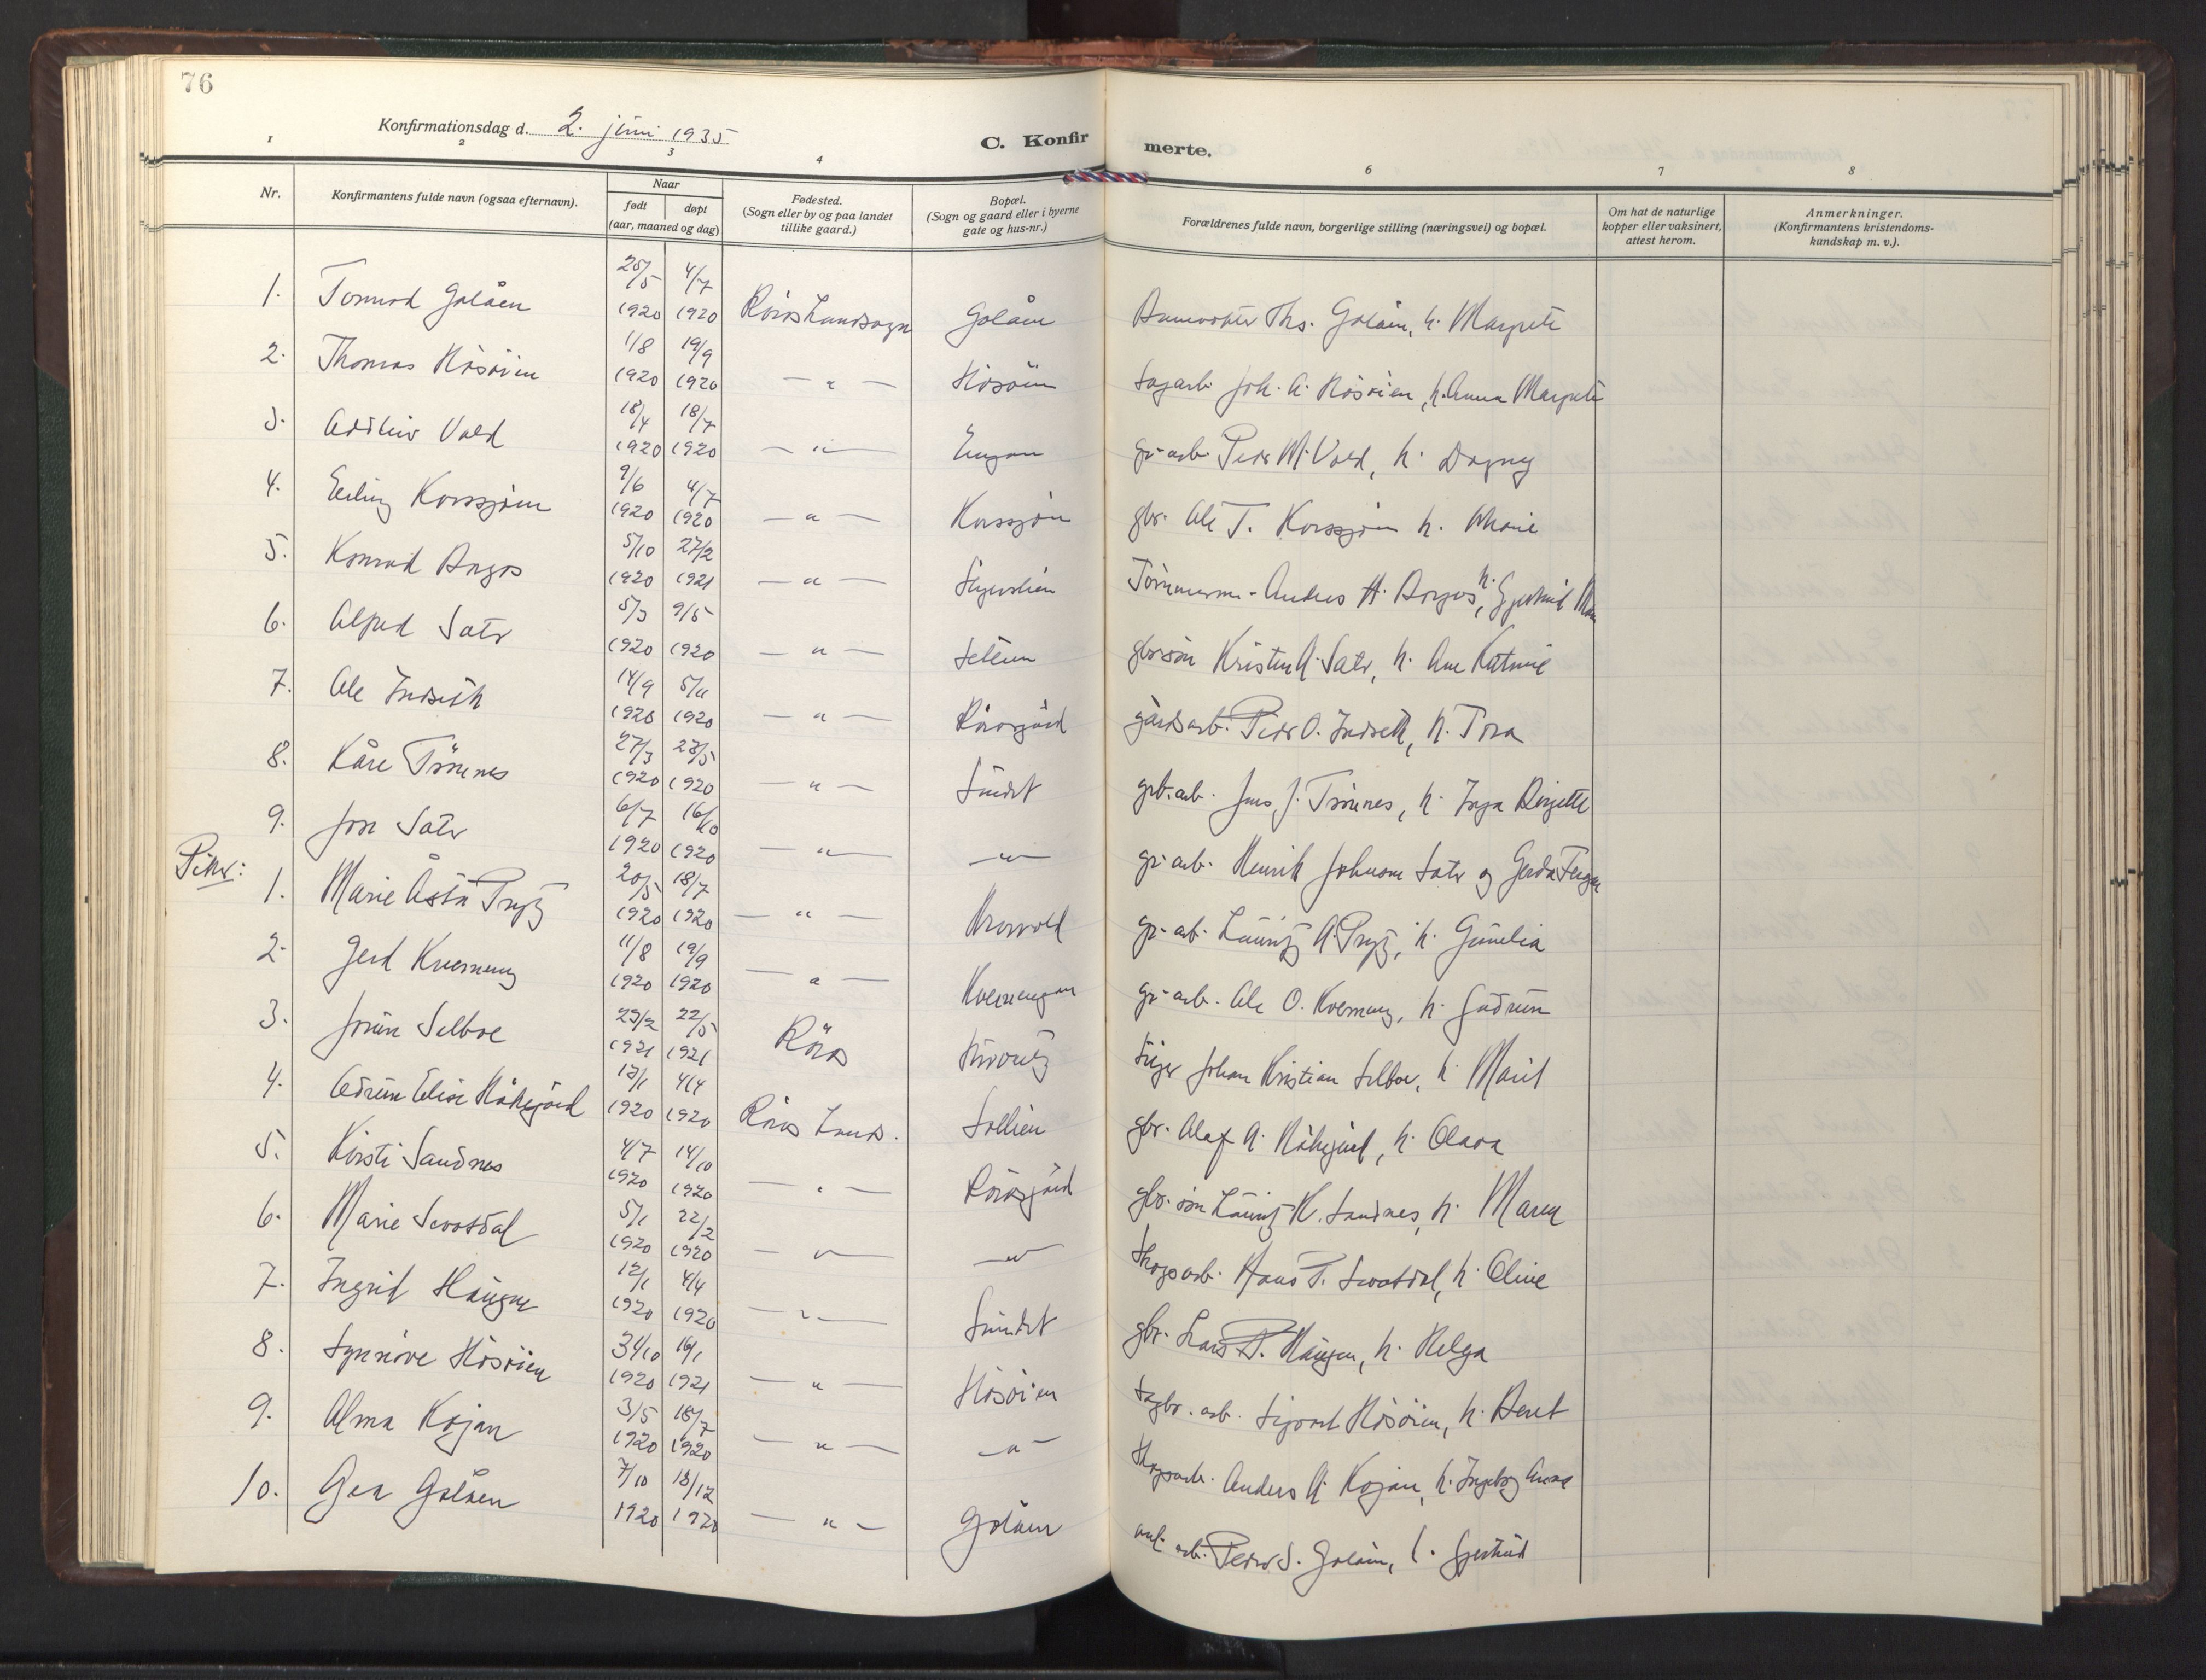 76
Konfirmationsdag d. 2. juni 1935
C. Konfirmerte.
1 2 3 4 6 7 8
Nr. Konfirmantens fulde navn (ogsaa efternavn). Naar født døpt (aar, maaned og dag) Fødested. (Sogn eller by og paa landet tillike gaard.) Bopæl. (Sogn og gaard eller i byerne gate og hus-nr.) Forældrenes fulde navn, borgerlige stilling (næringsvei) og bopæl. Om hat de naturlige kopper eller vaksinert, attest herom. Anmerkninger. (Konfirmantens kristendoms-kundskap m. v.).
1. Tormod Galåen 25/5 1920 4/7 1920 Röros Landsogn Galåen Ths. Galåen, h. Margrete
2. Thomas Hösöien 1/8 1920 19/9 1920 — " — Hösöien sagarb. Joh. A. Hösöien, h. Anna Margrete
3. Vold 18/4 1920 18/7 1920 — " — Engan gr-arb. Peder M. Vold, h. Dagny
4. Erling Korssjöen 9/6 1920 4/7 1920 — " — Korssjöen gbr. Ole T. Korssjöen h. Marie
5. Konrad Borgos 5/10 1920 27/2 1921 — " — Tömmerm. Anders H. Borgos, h. Gjertrud
6. Alfred Sater 5/3 1920 9/5 1920 — " — gbrsön Kristen A. Sater, h. Ane Katrine
7. Ole Indseth 14/9 1920 5/11 1920 — " — Rörosgård gårdsarb. Peder O. Indseth, h. Tora
8. Kåre Tönnes 27/3 1920 23/5 1920 — " — Sundet grb. arb. Jens J. Tönnes, h. Inga Birgitte
9. Jon Sater 6/7 1920 16/10 1920 — " — — " — gr-arb. Henrik Johnsen Sater og Gerda
Piker:
1. Marie Åsta Prytz 20/5 1920 18/7 1920 — " — gr-arb. Lauritz A. Prytz, h. Gunelia
2. Gerd Kverneng 11/8 1920 19/9 1920 — " — Kvernengen gr-arb. Ole O. Kverneng, h. Gudrun
3. Jorun Selboe 23/2 1921 22/5 1921 Röros Johan Kristian Selboe, h. Marit
4. Elise Håkegård 12/1 1920 4/4 1920 Röros Lands. Sollien gbr. Olaf A. Håkegård, h. Olava
5. Kirsti Sandnes 4/7 1920 14/10 1920 — " — Rörosgård gbr. sön Lauritz K. Sandnes, h. Maren
6. Marie Svartdal 5/1 1920 22/2 1920 — " — — " — Skogsarb. Hans T. Svartdal, h. Oline
7. Ingrid Haugen 12/1 1920 4/4 1920 — " — Sundet gbr. Lars P. Haugen, h. Helga
8. Synnöve Hösöien 31/10 1920 16/1 1921 — " — Hösöien sagbr. arb. Sigvart Hösöien, h. Beret
9. Alma Kojan 3/5 1920 18/7 1920 — " — — " — Skogsarb. Anders A. Kojan, h. Ingeborg Anna
10. Gea Galåen 7/10 1920 18/12 1920 — " — Galåen arb. Peder S. Galåen, h. Gjertrud